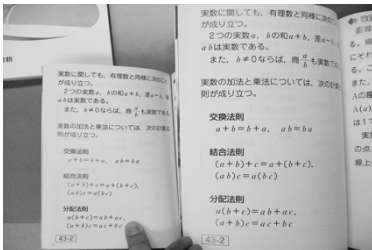 実数に関しても、有理数と同様に次のこと
が成り立つ。
2つの実数a, bの和a+b, 差a-b,
abは実数である。
また、b≠0ならば、商a/bも実数で
実数の加法と乗法については、次の計算
則が成り立つ。
交換法則
a+b=b+a, ab=ba
結合法則
(a+b)+c=a+(b+c),
(ab)c=a(bc)
分配法則
a(b+c)=ab+ac,
(a+b)c=ac+bc
43-2
実数に関しても、有理数と同様に次の
が成り立つ。
2つの実数a, bの和a+b, 差a-
abは実数である。
また、b≠0ならば、商a/bも実数で
実数の加法と乗法については、次の計算
則が成り立つ。
交換法則
a+b=b+a, ab=ba
結合法則
(a+b)+c=a+(b+c),
(ab)c=a(bc)
分配法則
a(b+c)=ab+ac,
(a+b)c=ac+bc
43-2